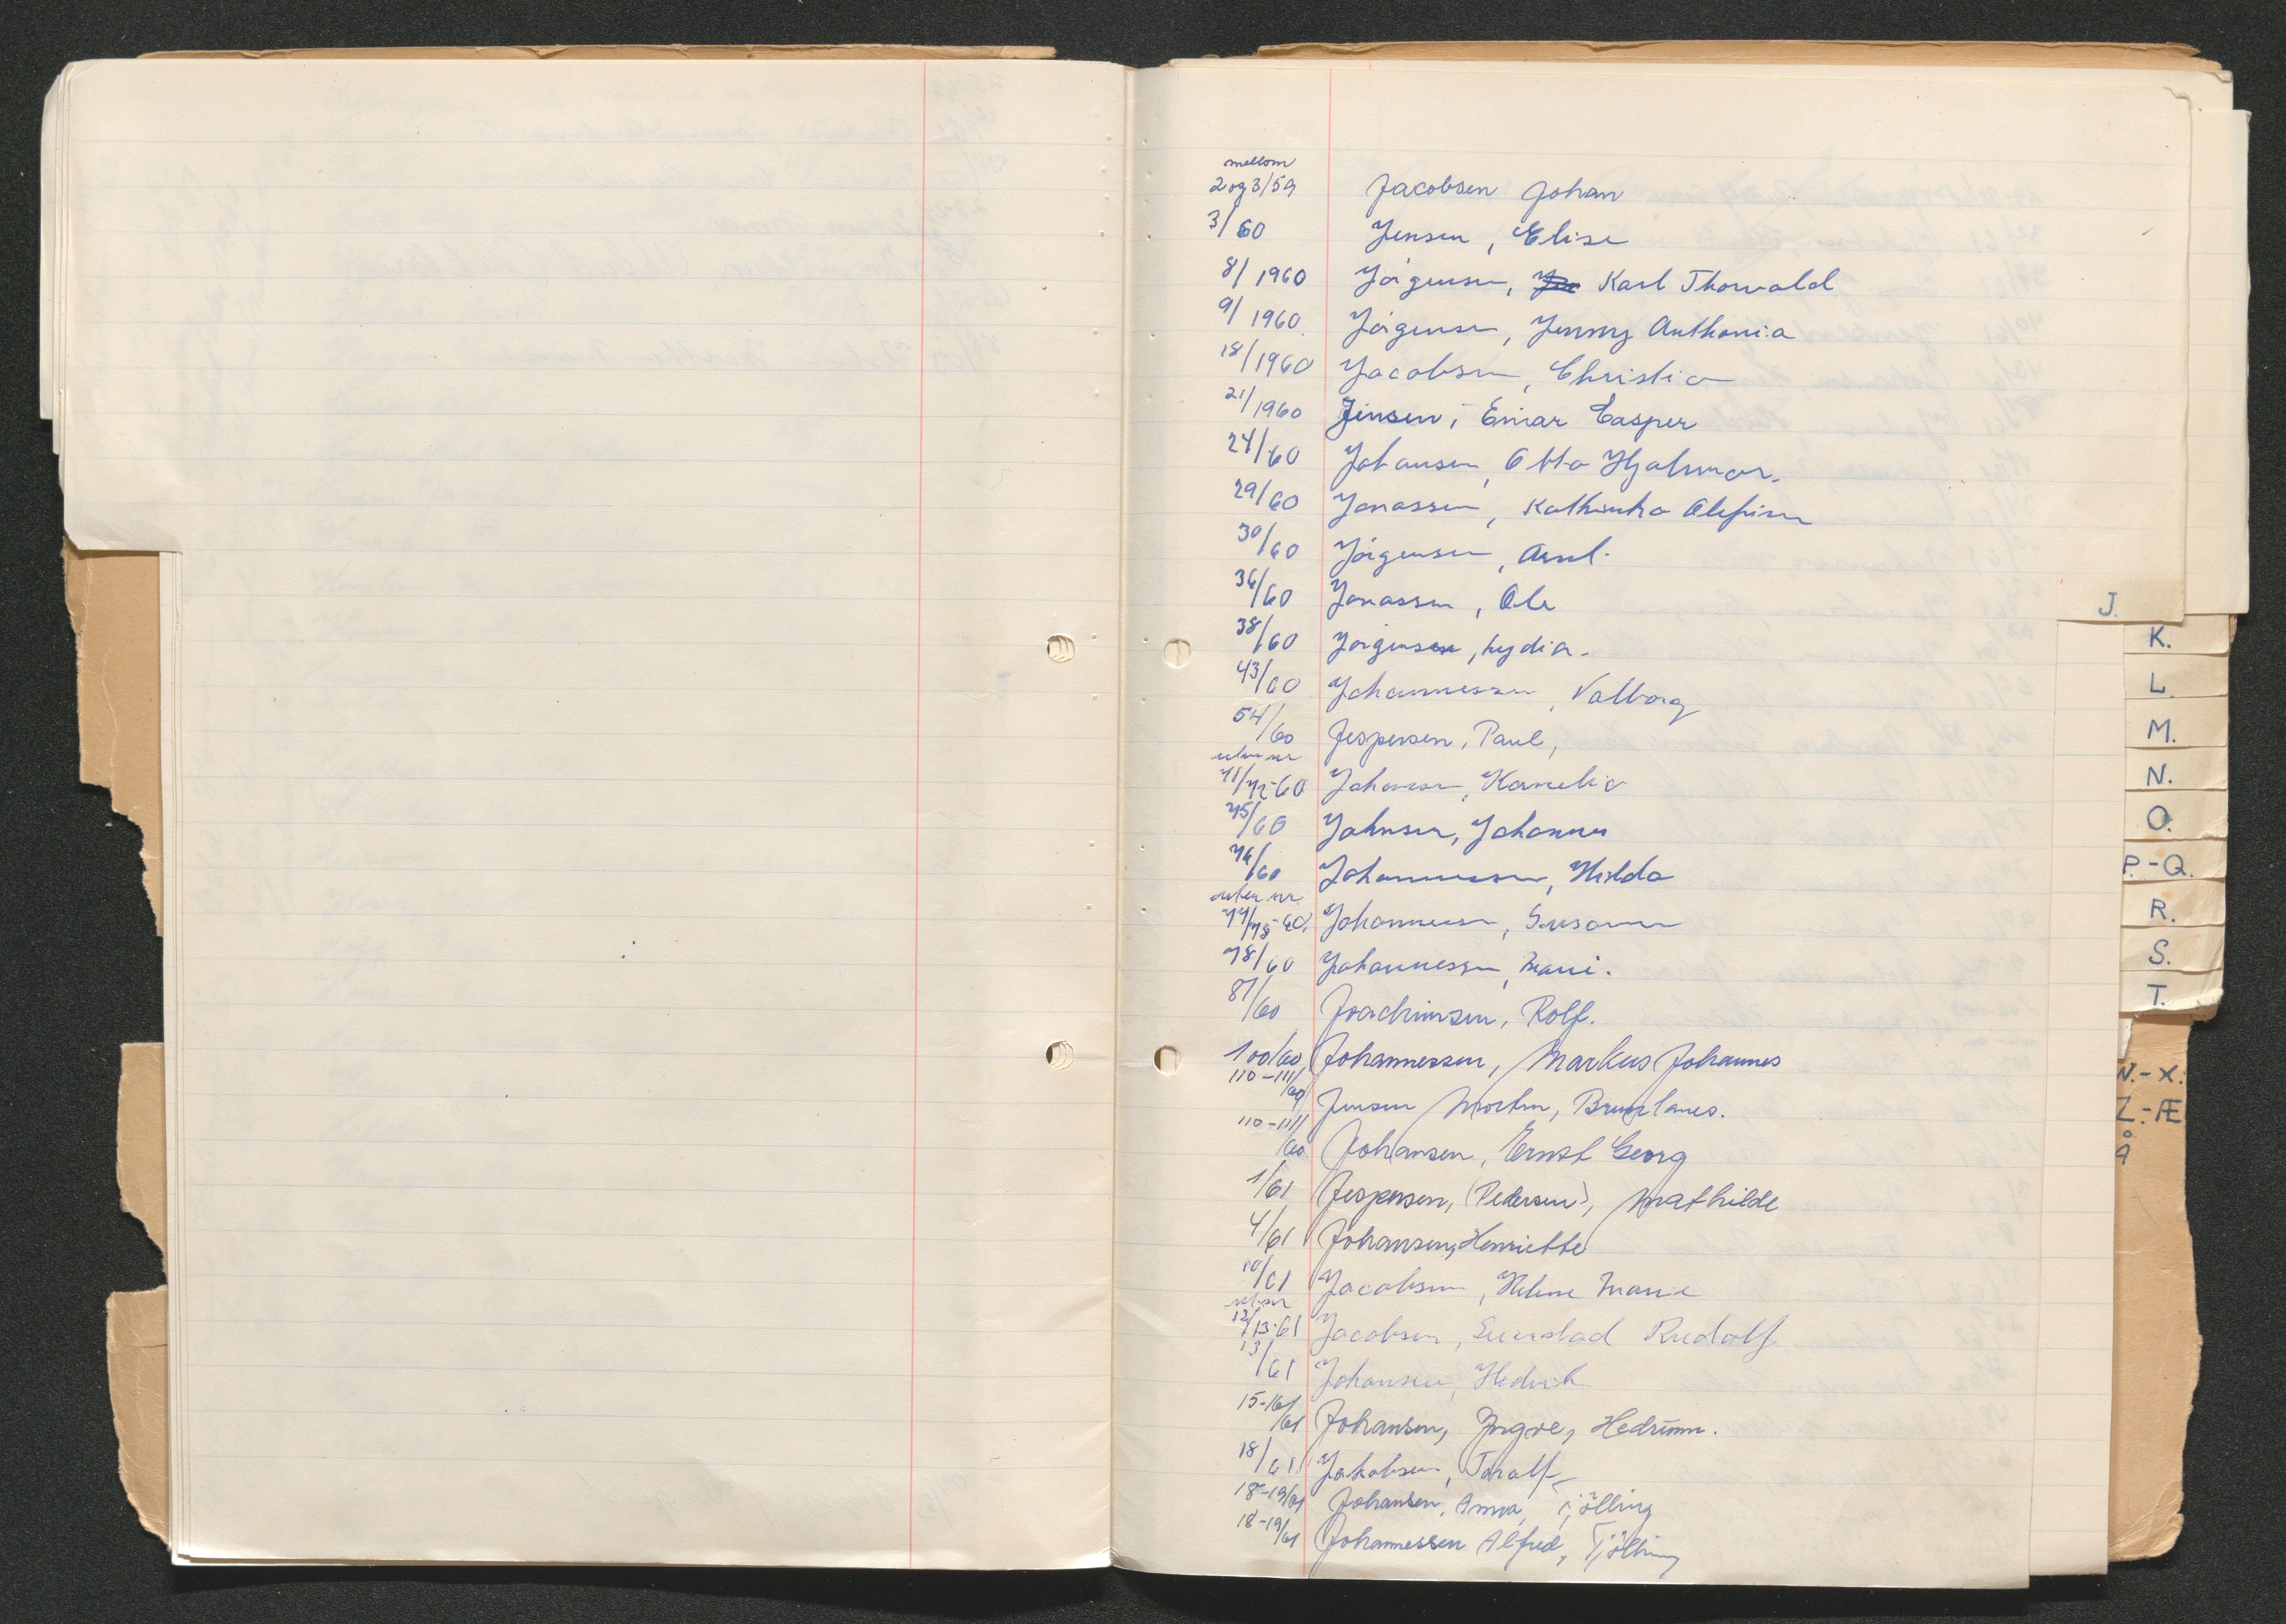 mellom
2 og 3/59 Jacobsen Johan
3/60 Jensen, Elise
8/1960 Jörgensen, Karl Thorvald
9/1960. Jörgensen, Jenny Anthonia
18/1960 Jacobsen, Christia
21/1960 Jensen, Einar Casper
24/60 Johansen, Otto Hjalmar.
29/60 Jonassen, Kathinka
30/60 Jörgensen,
36/60 Jonassen, Ole
38/60 Jörgensen, Lydia.
43/60 Johannessen, Valborg
54/60 Jespersen, Paul,
uten nr
71/72-60 Johansen, Kornelia
75/60 Johnsen, Johannes
76/60 Johannessen, Hilda
uten nr.
77/78-60. Johannessen, Susanne
78/60 Johannessen, Marie.
87/60 Joachimsen, Rolf.
100/60 Johannessen, Markus Johannes
110-111/60 Jensen Morten, Brunlanes.
110-111/60 Johansen, Ernst Georg
1/61 Jespersen, (Pedersen), Mathilde
4/61 Johansen, Henriette
10/61 Jacobsen, Helene Marie
ut. nr
12/13-61 Jacobsen, Rudolf
13/61 Johansen, Hedvik
15-16/61 Johansen, Yngve, Hedrum.
18/61 Jakobsen, Toralf
18-19/61 Johansen, Anna, Tjölling
18-19/61 Johannessen Alfred, Tjölling
J.
K.
L.
M.
N.
O.
P.-Q.
R.
S.
T.
W.-X.
Z.-Æ
Å